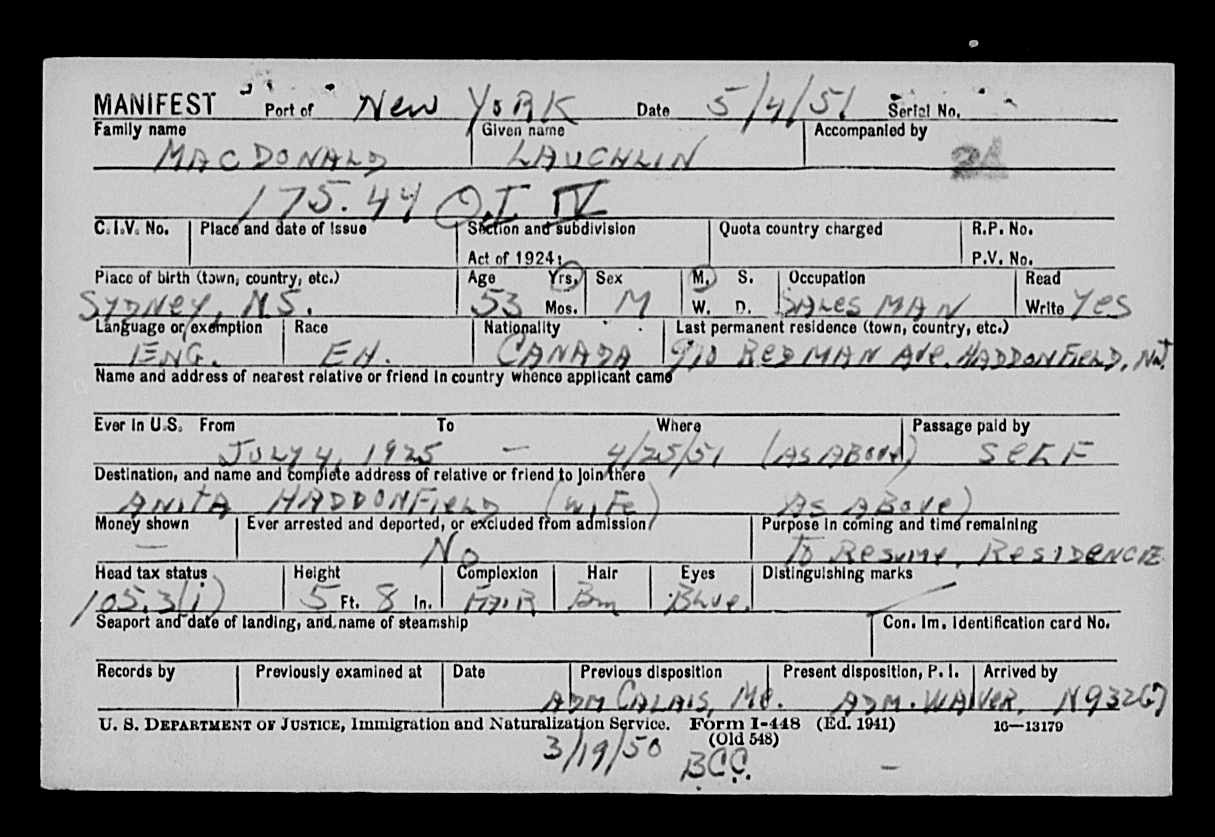 MANIFEST Port of New YORK Date 5/4/51 Serial No.
Family name Given name Accompanied by
MACDONALD LAUCHLIN
175.44 O.I IV
C.I.V. No. Place and date of issue Section and subdivision Quota country charged R.P. No.
Act of 1924, P.V. No.
Place of birth (town, country, etc.) Age Yrs. Sex M. S. Occupation Read
SYDNEY, N.S. 53 Mos. M W. D. SALES MAN Write Yes
Language or exemption Race Nationality Last permanent residence (town, country, etc.)
ENG. EN. CANADA 910 REDMAN AVE. HADDONFIELD, N.J.
Name and address of nearest relative or friend in country whence applicant came
Ever in U.S. From To Where Passage paid by
JULY 4, 1925 — 4/25/51 (AS ABOVE) SELF
Destination, and name and complete address of relative or friend to join there
ANITA HADDONFIELD (WIFE) AS ABOVE)
Money shown Ever arrested and deported, or excluded from admission Purpose in coming and time remaining
— No To Resume, RESIDENCE
Head tax status Height Complexion Hair Eyes Distinguishing marks
105.3(i) 5 Ft. 8 In. FAIR Brn Blue.
Seaport and date of landing, and name of steamship Con. Im. Identification card No.
Records by Previously examined at Date Previous disposition Present disposition, P. I. Arrived by
ADM CALAIS, Me. ADM. WAIVER, N93267
U. S. DEPARTMENT OF JUSTICE, Immigration and Naturalization Service. Form I-448 (Ed. 1941) 16—13179
(Old 548)
3/19/50 B.C.C.